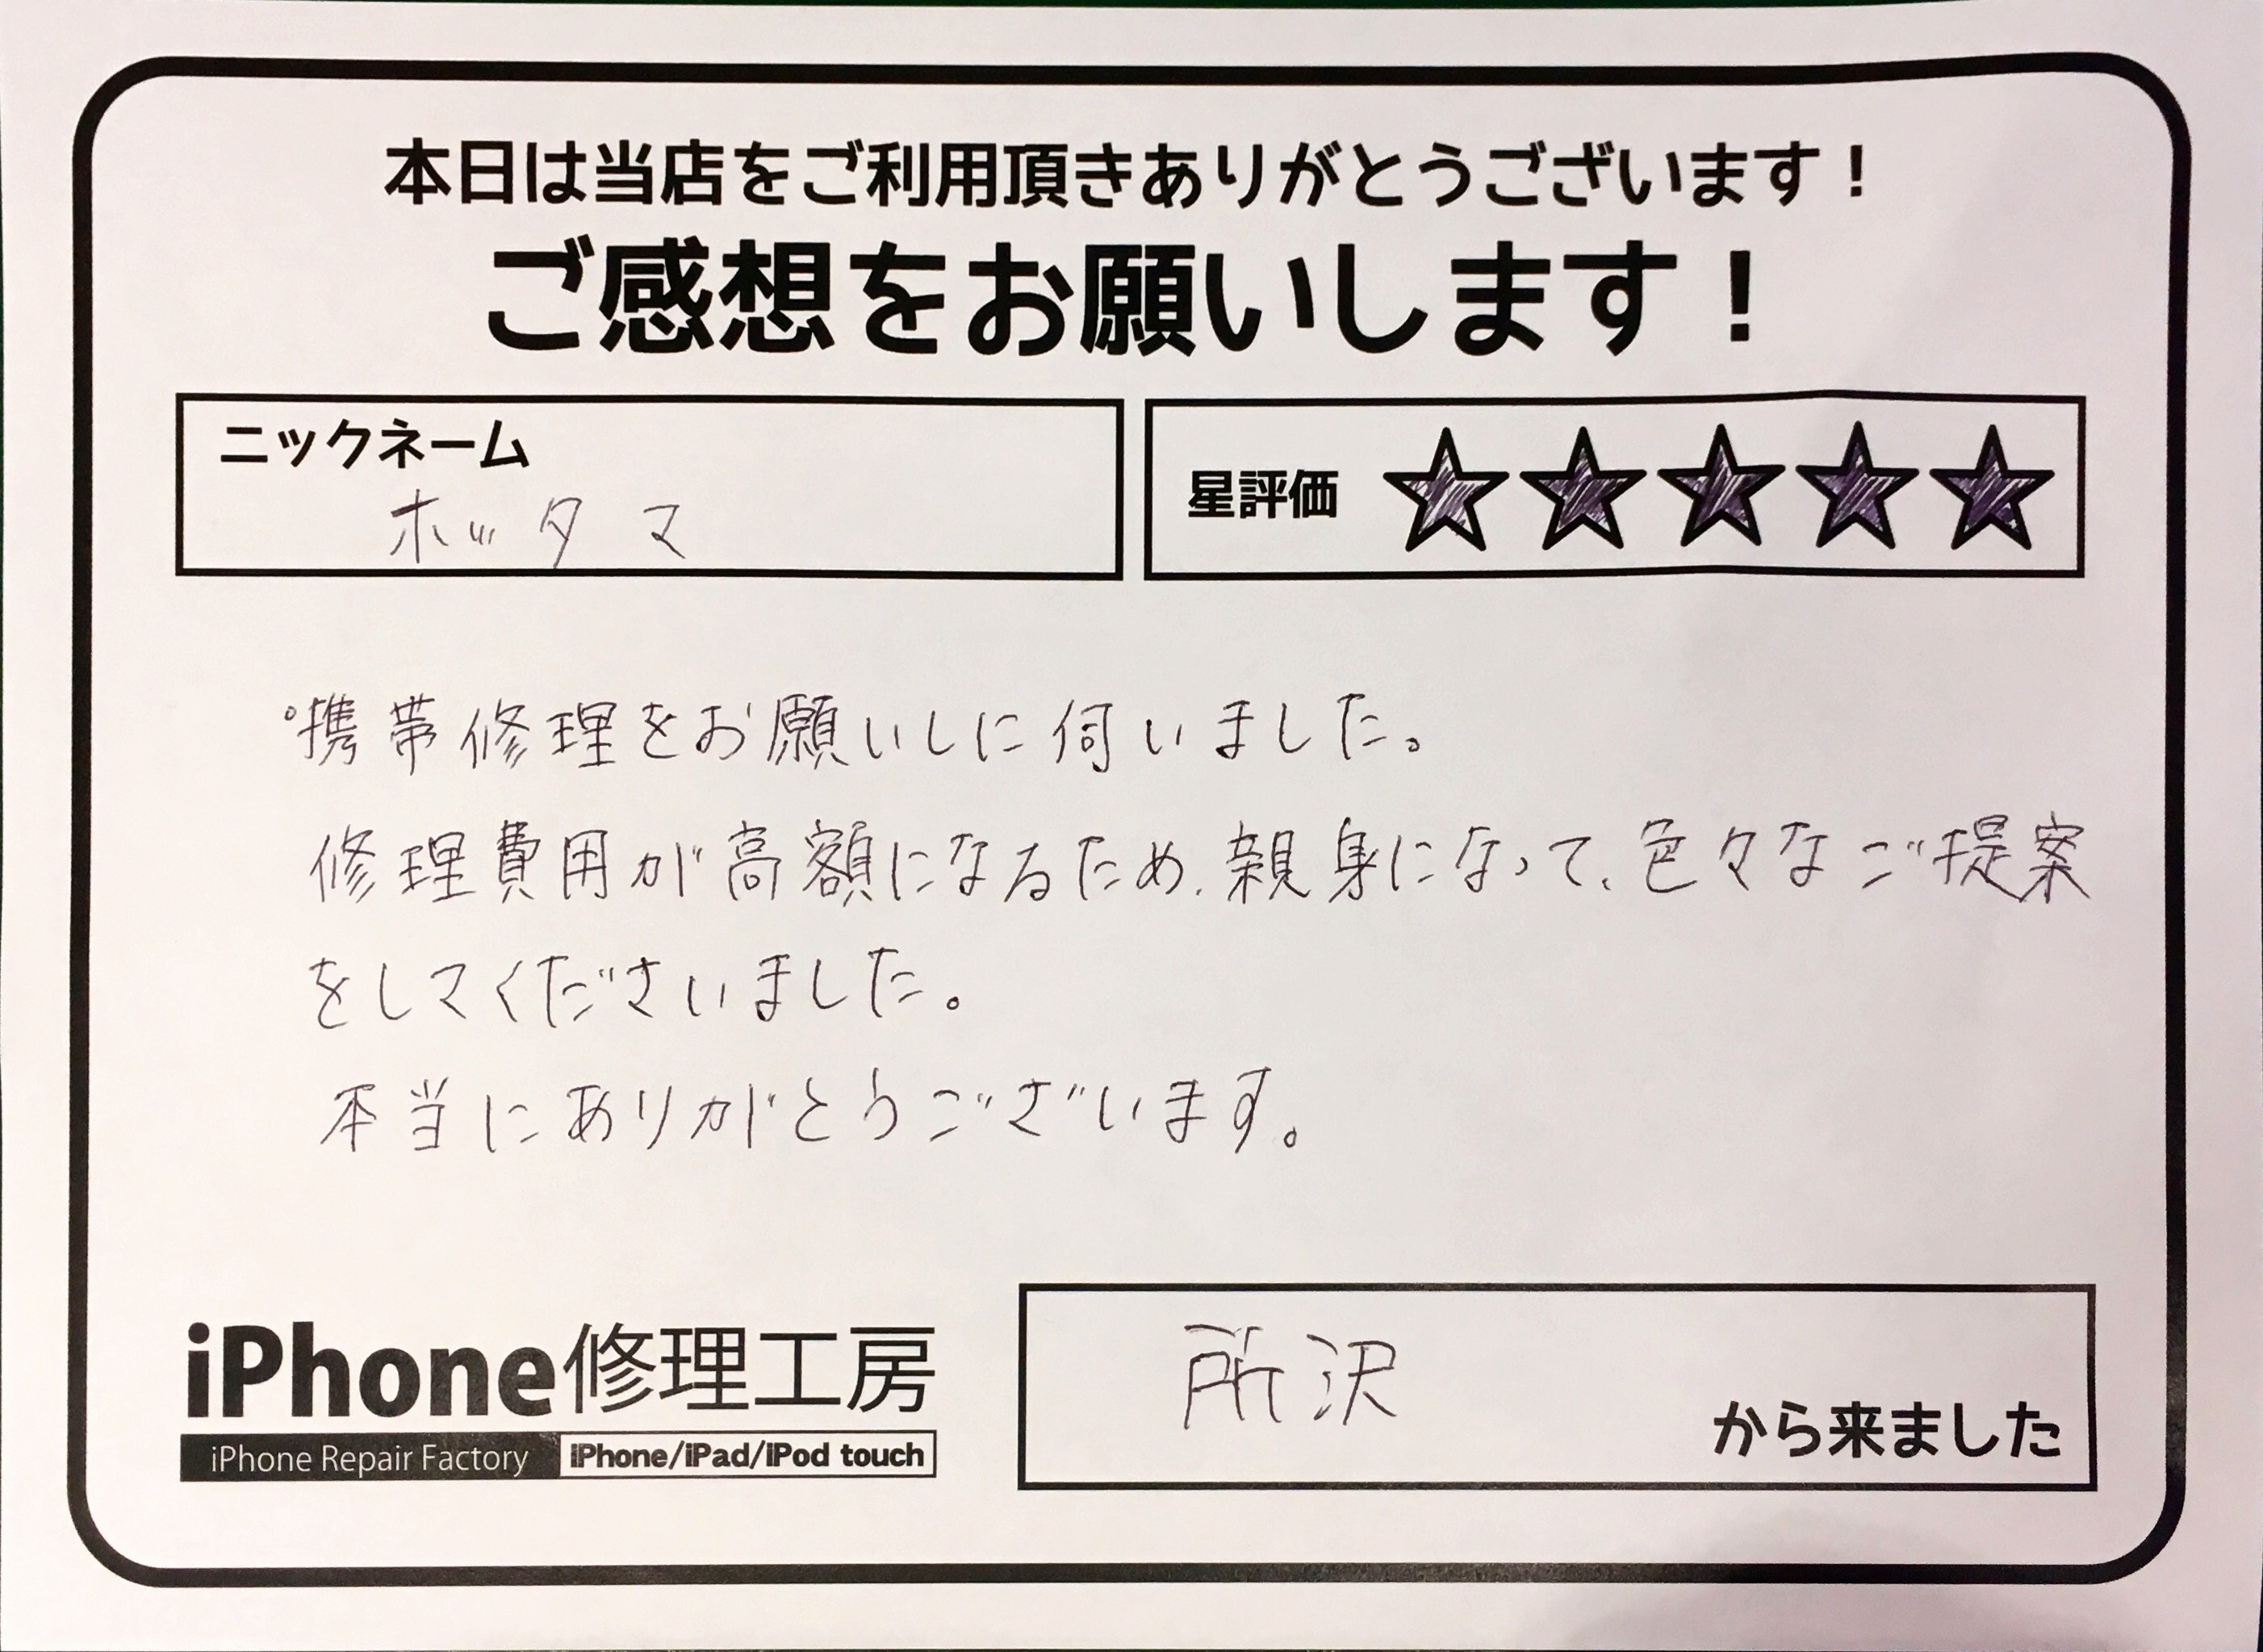 本日は当店をご利用頂きありがとうございます！
ご感想をお願いします！
ニックネーム
ホッタマ
星評価 ★★★★★
°携帯修理をお願いしに伺いました。
修理費用が高額になるため、親身になって、色々なご提案
をしてくださいました。
本当にありがとうございます。
iPhone修理工房
iPhone Repair Factory iPhone/iPad/iPod touch
所沢
から来ました